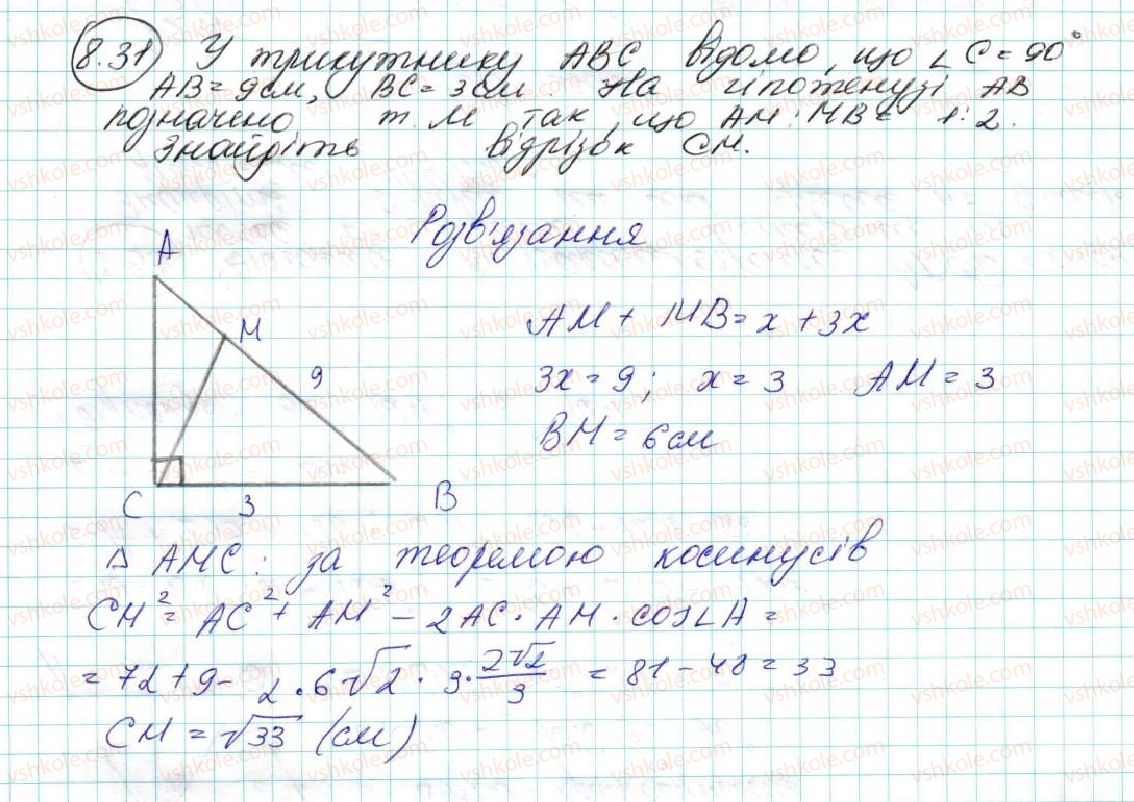 8.31 У трикутнику ABC відомо, що ∠C = 90°
AB = 9см, BC = 3см. На гіпотенузі AB
позначено т. M так, що AM : MB = 1:2.
Знайдіть відрізок CM.
Розв'язання
A
M
9
C
3
B
AM + MB = x + 3x
3x = 9; x = 3 AM = 3
BM = 6см
Δ AMC: за теоремою косинусів
CM² = AC² + AM² - 2AC · AM · cos∠A =
= 72 + 9 - 2 · 6√2 · 3 · 2√2/3 = 81 - 48 = 33
CM = √33 (см)